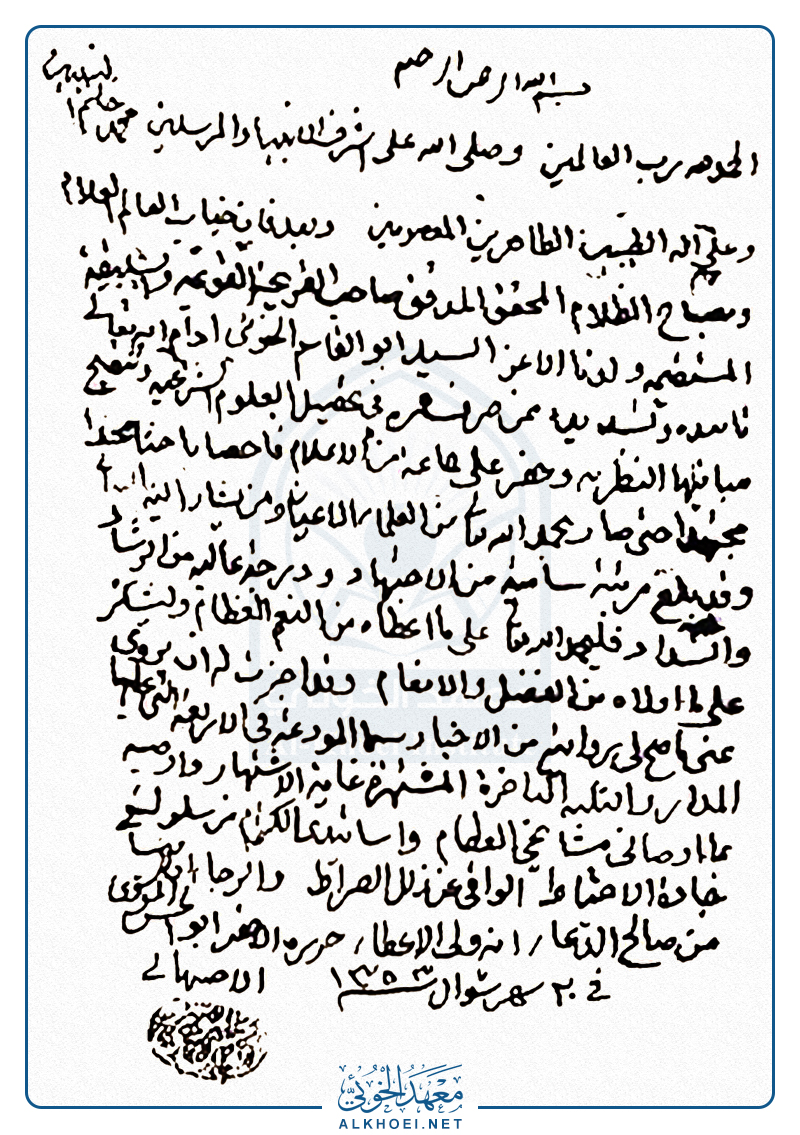 بسم الله الرحمن الرحيم
الحمد لله رب العالمين وصلى الله على اشرف الانبياء والمرسلين محمد خاتم النبيين
وعلى اله الطيبين الطاهرين المعصومين وبعد فان جناب العالم العلام
ومصباح الظلام المحقق المدقق صاحب القريحة القويمة والسليقة
المستقيمة ولدنا الاعز السيد ابو القاسم الخوئي ادام الله تعالى
تاييده وتسديده ممن صرف عمره في تحصيل العلوم الشرعية وتنقيح
مبانيها النظرية وحضر على جماعة من الاعلام فاحصا باحثا مجدا
مجتهدا حتى صار بحمد الله تعا من العلماء الاعيان ومن يشار اليه
وقد بلغ مرتبة سامية من الاجتهاد ودرجة عالية من الرشاد
والسداد فليحمد الله تعا على ما اعطاه من النعم العظام وليشكر
على ما اولاه من الفضل والانعام وقد اجزت له ان يروي
عني ما صح لي روايته من الاخبار سيما المودعة في الاربعة التي عليها
المدار المشتهرة غاية الاشتهار واوصيه
بما اوصاني مشايخي العظام واساتيذي الكرام من سلوك
جادة الاحتياط الواقي عن زلل الصراط والرجاء ان لا ينساني
من صالح الدعاء انه ولي الاعطاء حرره الاحقر ابو الحسن الموسوي
الاصبهاني
في ٢٠ شهر شوال ١٣٥٣
معهد الخوئي
ALKHOEI.NET